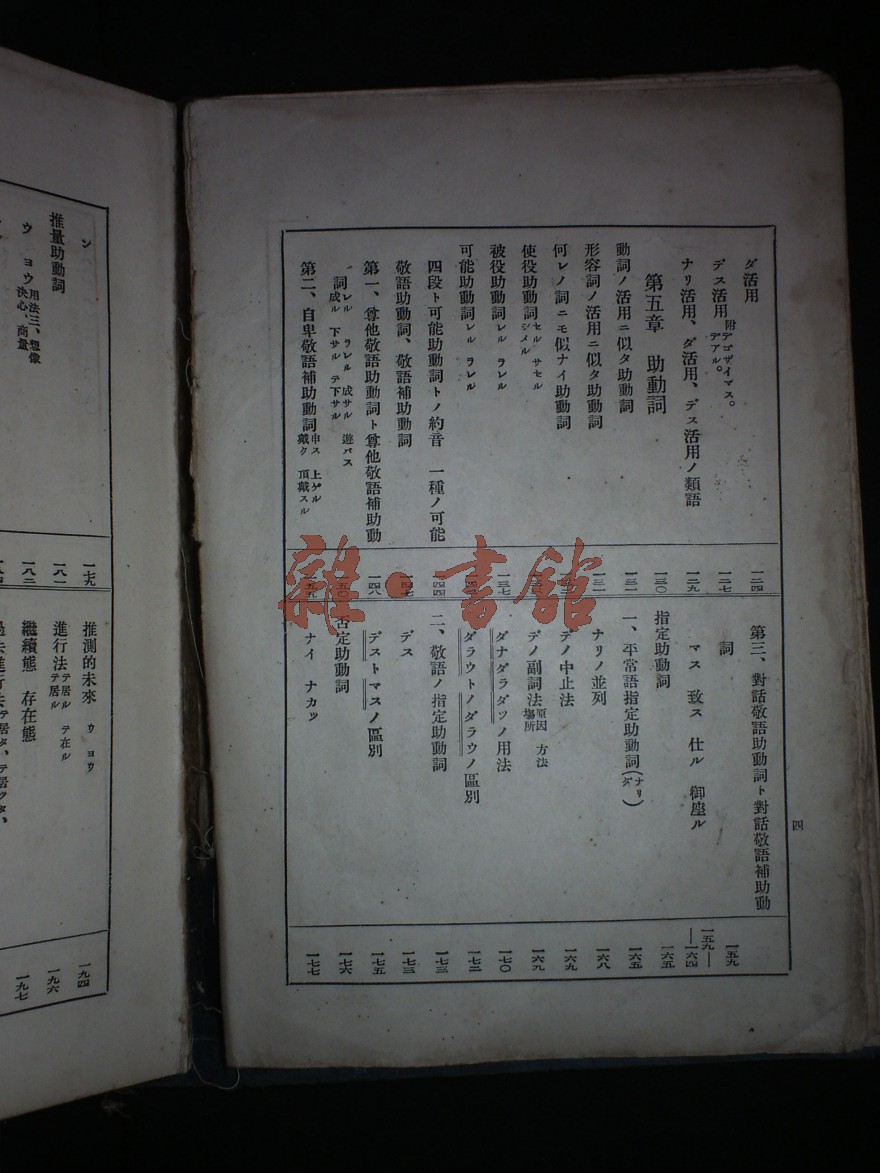 ダ活用 一二四
デス活用 附 デゴザイマス。デアル。 一二七
ナリ活用、ダ活用、デス活用ノ類語 一二九
第五章 助動詞 一三〇
動詞ノ活用ニ似タ助動詞 一三一
形容詞ノ活用ニ似タ助動詞
何レノ詞ニモ似ナイ助動詞
使役助動詞 セル サセル シメル
被役助動詞 レル ラレル 一三七
可能助動詞 レル ラレル
四段ト可能助動詞トノ約音 一種ノ可能 一四四
敬語助動詞、敬語補助動詞 一四七
第一、尊他敬語助動詞ト尊他敬語補助動 一四八
詞 レル ラレル 成サル 遊バス 成ル 下サル テ下サル 一五〇
第二、自卑敬語補助動詞 申ス 上ゲル 戴ク 頂戴スル 一五五
第三、對話敬語助動詞ト對話敬語補助動
詞 一五九
マス 致ス 仕ル 御座ル 一五九——一六四
指定助動詞 一六五
一、平常語指定助動詞(ナリ ダ) 一六五
ナリノ並列 一六八
デノ中止法 一六九
デノ副詞法 原因 方法 場所 一六九
ダナダラダツノ用法 一七〇
ダラウトノダラウノ區別 一七二
二、敬語ノ指定助動詞 一七三
デス 一七三
デストマスノ區別 一七五
否定助動詞 一七六
ナイ ナカッ 一七七
四
雜·書館
ン 一七九
推量助動詞 一八一
ウ ヨウ 用法三、想像 決心、商量 一八二
推測的未來 ウ ヨウ 一九四
進行法 テ居ル テ在ル テ居ル 一九六
繼續態 存在態 一九七
過去進行法 テ居タ、テ居ツタ、